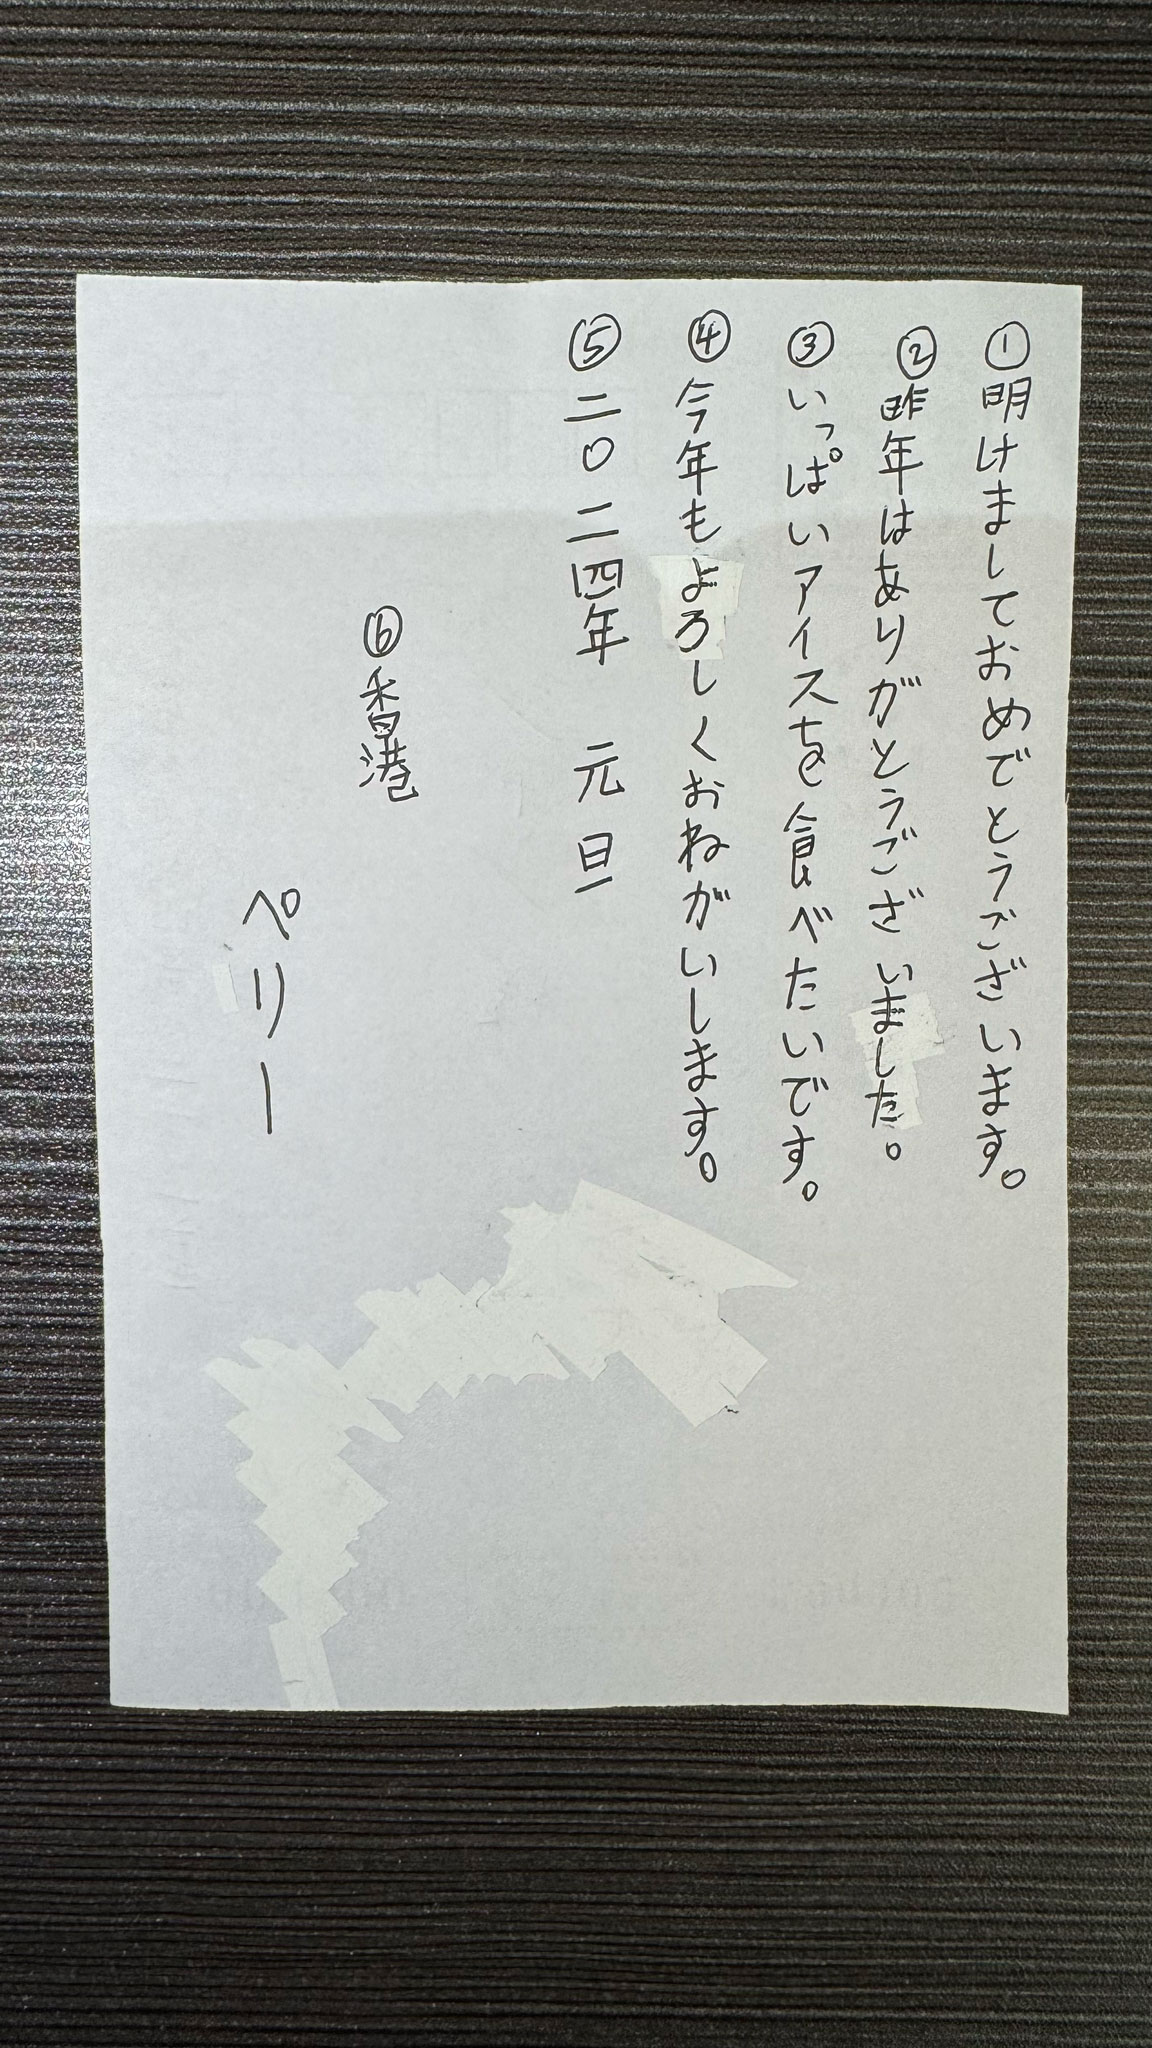 ①明けましておめでとうございます。
②昨年はありがとうございました。
③いっぱいアイスを食べたいです。
④今年もよろしくおねがいします。
⑤二〇二四年 元旦
⑥香港
ペリー